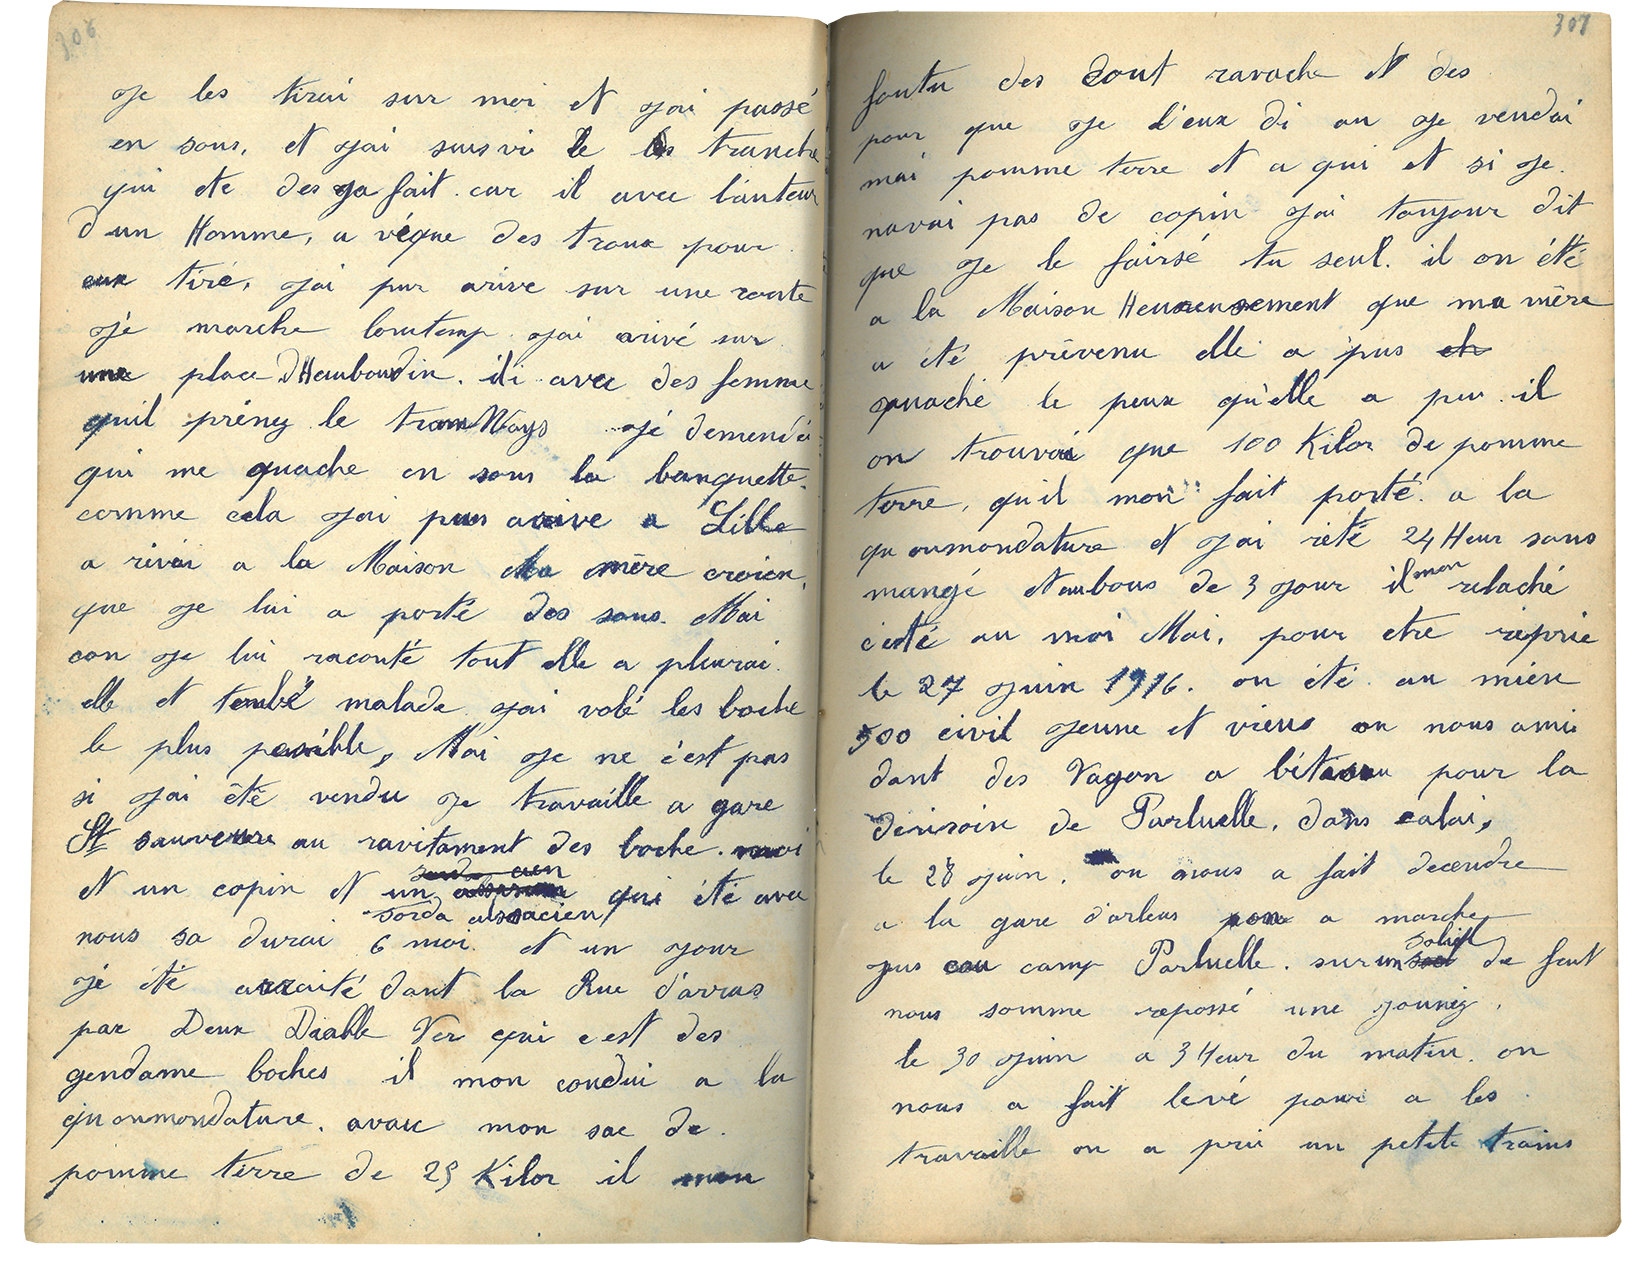 306
Je les tirai sur moi et Jai passé
en sous, et Jai suis vi le les tranche
qui ete des ja fait. car il avec lauteur
d un Homme, a véque des troux pour
eux tiré, Jai pur arive sur une route
Jé marche lontemp Jai arivé sur
une place D'Haubourdin. ili avec des femme
quil préney le tramWays Jé demendé
qui me quache en sous la banquette.
comme cela Jai pus arive a Lille
a rivai a la Maison Ma mère croien,
que Je lui a porté des sous. Mai
can Je lui raconté tout elle a pleurai.
elle et tembé malade Jai volé les boche
le plus posible, Mai Je ne c'est pas
si Jai été vendu Je travaille a gare
St sauveure au ravitament des boche. moi
et un copin et un sorda alsacien qui été avec
nous sa durai 6 moi et un Jour
Jé été arraité dant la Rue d'arras
par Deux Diable Ver qui c est des
gendame boches il mon condui a la
quonmondature. avauc mon sac de.
pomme terre de 25 Kilor il mon
307
foutu des cout ravache et des
pour que Je leux di au Je vendai
mai pomme terre et a qui et si Je.
navai pas de copin Jai toujour dit
que Je le fairsé tu seul. il on été
a la Maison Heureusement que ma mère
a été prévenu elle a pus
quaché le peux qu'elle a peu. il
on trouvai que 100 Kilor de pomme
terre, qu'il mon fait porté. a la
quonmondature et Jai rété 24 Heur sans
mangé et aubous de 3 Jour il mon relaché
c'eté au moi Mai, pour etre reprie
le 27 Juin 1916. on été au mien
500 civil Jeune et vieus on nous amis
dant des Vagon a bétaau pour la
denisoin de Parluelle, dans calai,
le 28 Juin, on nous a fait decendre
a la gare d'arleus pon a marche
jus cau camp Parluelle. sur un solid de fant
nous somme repossé une Jouriez,
le 30 Juin a 3 Heur du matin. on
nous a fait levé pour a les
travaille on a prie un petite trains